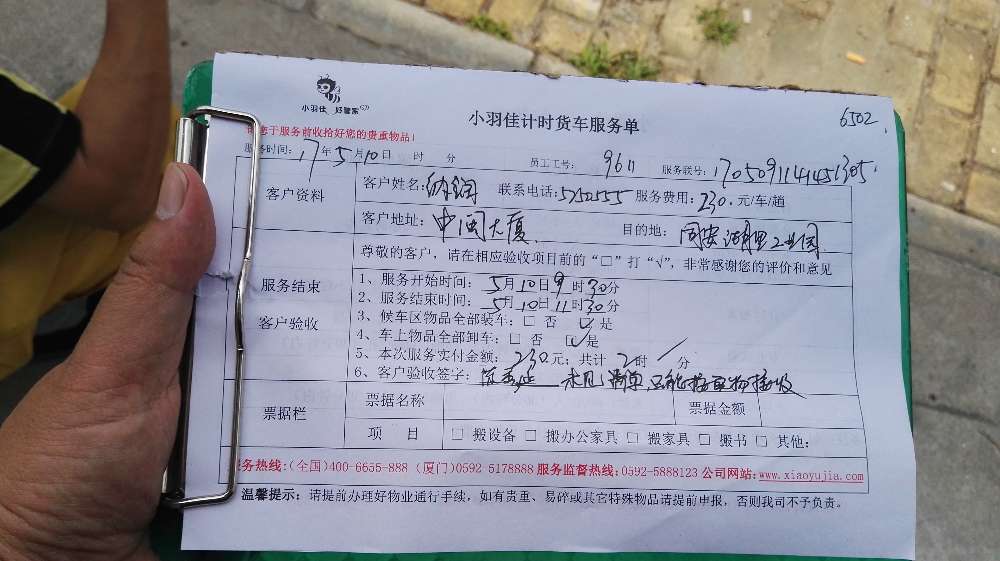 小羽佳 好管家
小羽佳计时货车服务单
6502
请您于服务前收拾好您的贵重物品！
服务时间：17年5月10日 时 分 员工工号：9611 服务联号：
客户资料 客户姓名：纳润 联系电话：5752555 服务费用：230.元/车/趟
客户地址：中闽大厦 目的地：同安湖里工业园
尊敬的客户，请在相应验收项目前的“□”打“√”，非常感谢您的评价和意见
服务结束
客户验收
1、服务开始时间：5月10日9时30分
2、服务结束时间：5月10日11时30分
3、候车区物品全部装车：□ 否 ☑ 是
4、车上物品全部卸车：□ 否 ☑ 是
5、本次服务实付金额：230元；共计2时/分
6、客户验收签字： 未见清单只能按实物接收
票据栏 票据名称 票据金额
项 目 □ 搬设备 □ 搬办公家具 □ 搬家具 □ 搬书 □ 其他：
服务热线：(全国)400-6655-888 (厦门)0592-5178888 服务监督热线：0592-5888123 公司网站：www.xiaoyujia.com
温馨提示：请提前办理好物业通行手续，如有贵重、易碎或其它特殊物品请提前申报，否则我司不予负责。